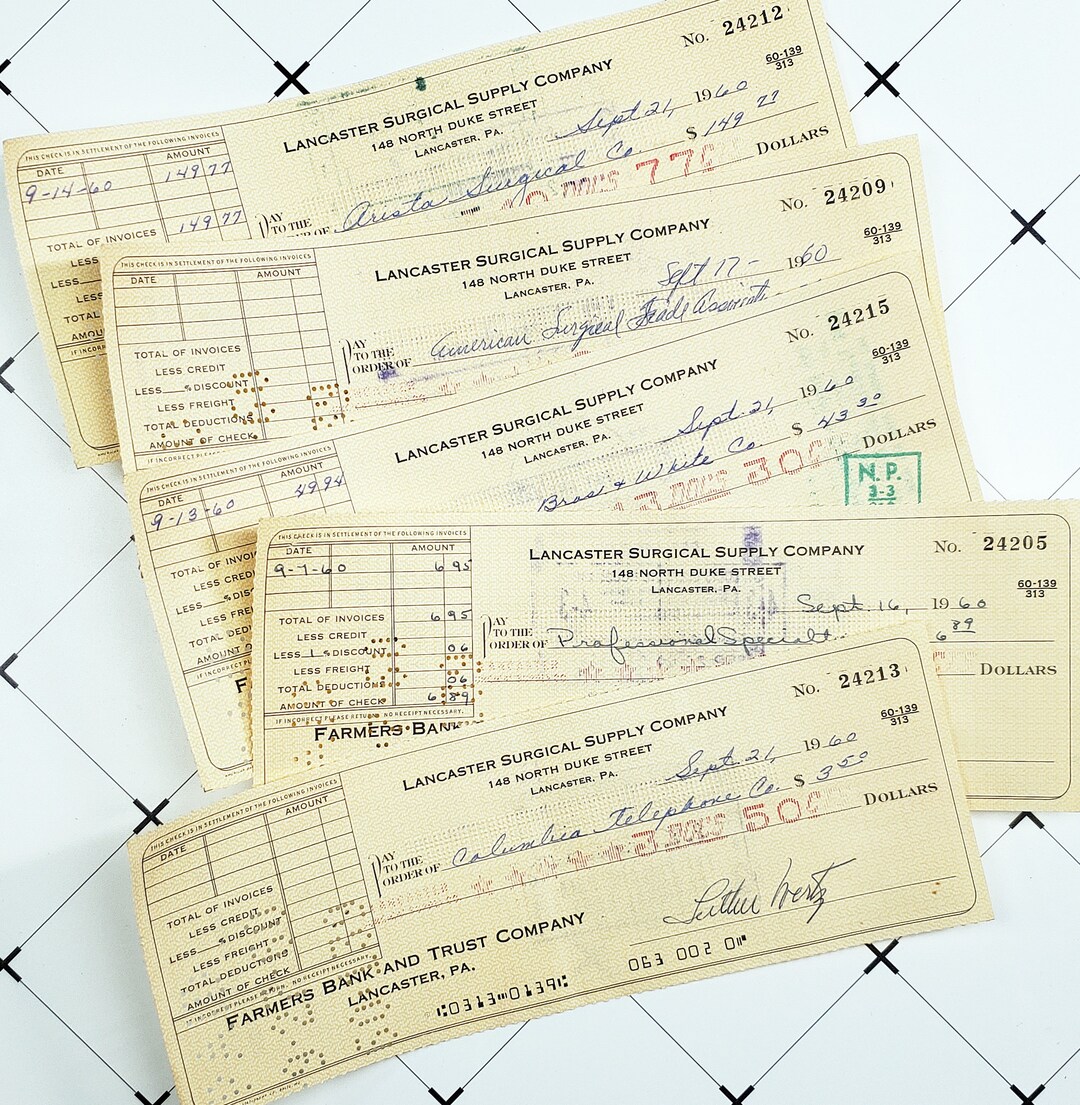 No. 24212
60-139
313
LANCASTER SURGICAL SUPPLY COMPANY
148 NORTH DUKE STREET
LANCASTER, PA.
Sept. 21, 1960
THIS CHECK IS IN SETTLEMENT OF THE FOLLOWING INVOICES
DATE AMOUNT
9-14-60 149 77
149 77
TOTAL OF INVOICES
LESS
LESS
LESS
TOTAL
AMOU
IF INCORREC
PAY
TO THE
ORDER OF Arista Surgical Co. $ 149 77
DOLLARS
No. 24209
60-139
313
LANCASTER SURGICAL SUPPLY COMPANY
148 NORTH DUKE STREET
LANCASTER, PA.
Sept 17 - 1960
THIS CHECK IS IN SETTLEMENT OF THE FOLLOWING INVOICES
DATE AMOUNT
TOTAL OF INVOICES
LESS CREDIT
LESS % DISCOUNT
LESS FREIGHT
TOTAL DEDUCTIONS
AMOUNT OF CHECK
IF INCORRECT PLEASE
PAY
TO THE
ORDER OF American Surgical Trade
No. 24215
60-139
313
LANCASTER SURGICAL SUPPLY COMPANY
148 NORTH DUKE STREET
LANCASTER, PA.
Sept. 21, 1960
THIS CHECK IS IN SETTLEMENT OF THE FOLLOWING INVOICES
DATE AMOUNT
9-13-60 49 94
TOTAL OF INVOI
LESS CRED
LESS % DIS
LESS FRE
TOTAL DEDU
AMOUNT O
IF INCORRECT
& White Co. $ 43 30
DOLLARS
N.P.
3-3
No. 24205
60-139
313
LANCASTER SURGICAL SUPPLY COMPANY
148 NORTH DUKE STREET
LANCASTER, PA.
Sept. 16, 1960
THIS CHECK IS IN SETTLEMENT OF THE FOLLOWING INVOICES
DATE AMOUNT
9-7-60 6 95
TOTAL OF INVOICES 6 95
LESS CREDIT
LESS 1 % DISCOUNT 06
LESS FREIGHT
TOTAL DEDUCTIONS 06
AMOUNT OF CHECK 6 89
IF INCORRECT PLEASE RETURN. NO RECEIPT NECESSARY.
PAY
TO THE
ORDER OF Professional 6 89
DOLLARS
FARMERS BANK
No. 24213
60-139
313
LANCASTER SURGICAL SUPPLY COMPANY
148 NORTH DUKE STREET
LANCASTER, PA.
Sept. 21, 1960
THIS CHECK IS IN SETTLEMENT OF THE FOLLOWING INVOICES
DATE AMOUNT
TOTAL OF INVOICES
LESS CREDIT
LESS % DISCOUNT
LESS FREIGHT
TOTAL DEDUCTIONS
AMOUNT OF CHECK
IF INCORRECT PLEASE RETURN. NO RECEIPT NECESSARY.
PAY
TO THE
ORDER OF Columbia Telephone Co. $ 3 50
DOLLARS
Luther Wertz
FARMERS BANK AND TRUST COMPANY
LANCASTER, PA.
⑆0313⑉0139⑆ 063 002 0⑈